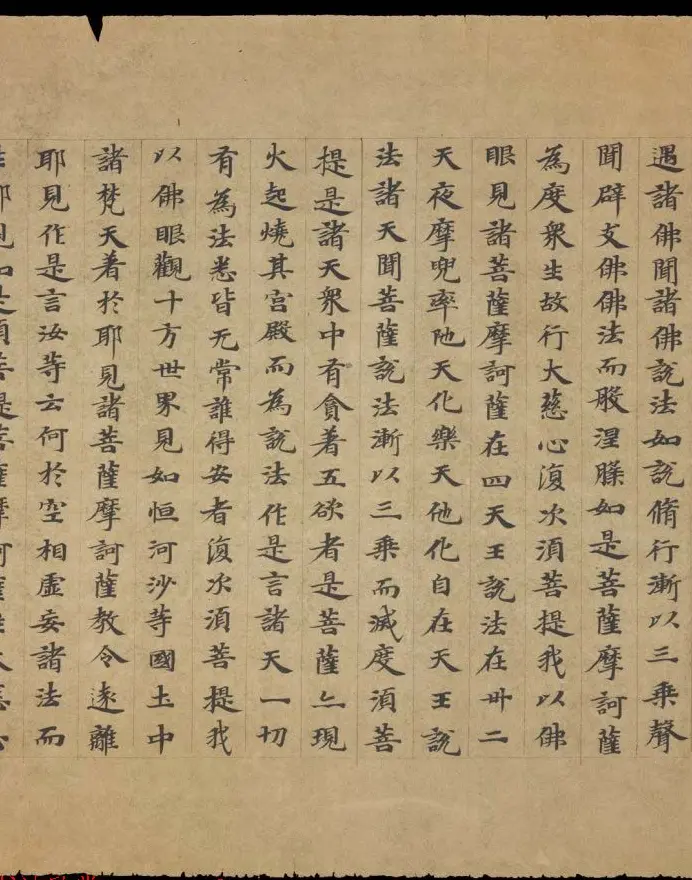 遇諸佛聞諸佛說法如說脩行漸以三乘聲
聞辟支佛佛法而般涅槃如是菩薩摩訶薩
為度衆生故行大慈心復次湏菩提我以佛
眼見諸菩薩摩訶薩在四天王說法在卅二
天夜摩兜率陁天化樂天他化自在天王說
法諸天聞菩薩說法漸以三乘而滅度湏菩
提是諸天衆中有貪著五欲者是菩薩亦現
火起燒其宮殿而為說法作是言諸天一切
有為法悉皆无常誰得安者復次湏菩提我
以佛眼觀十方世界見如恒河沙等國土中
諸梵天著於耶見諸菩薩摩訶薩教令遠離
耶見作是言汝等云何於空相虛妄諸法而